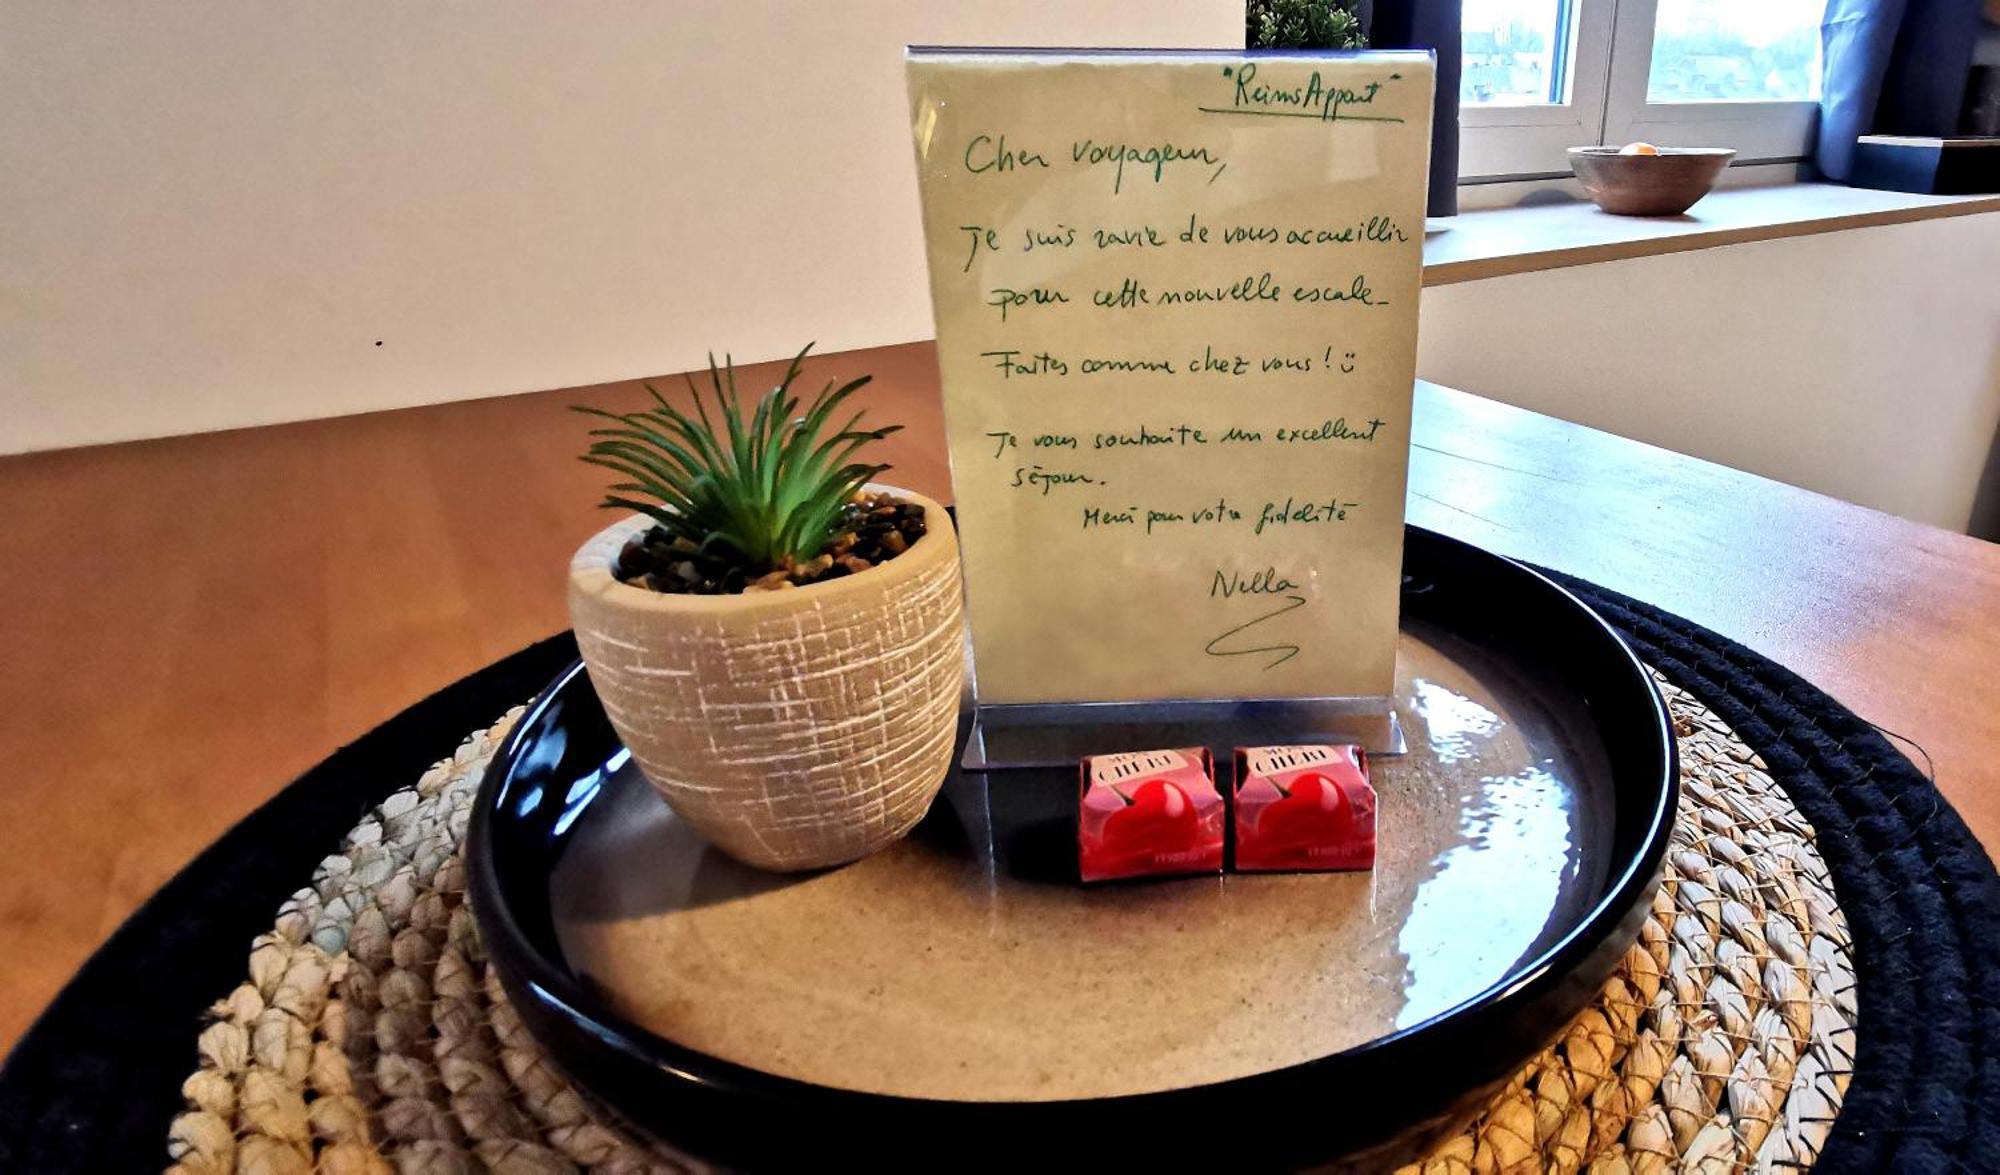 "ReimsAppart"
Cher voyageur,
Je suis ravie de vous accueillir
pour cette nouvelle escale_
Faites comme chez vous ! ü
Je vous souhaite un excellent
séjour.
Merci pour votre fidélité
Nella
MON CHÉRI
MON CHÉRI